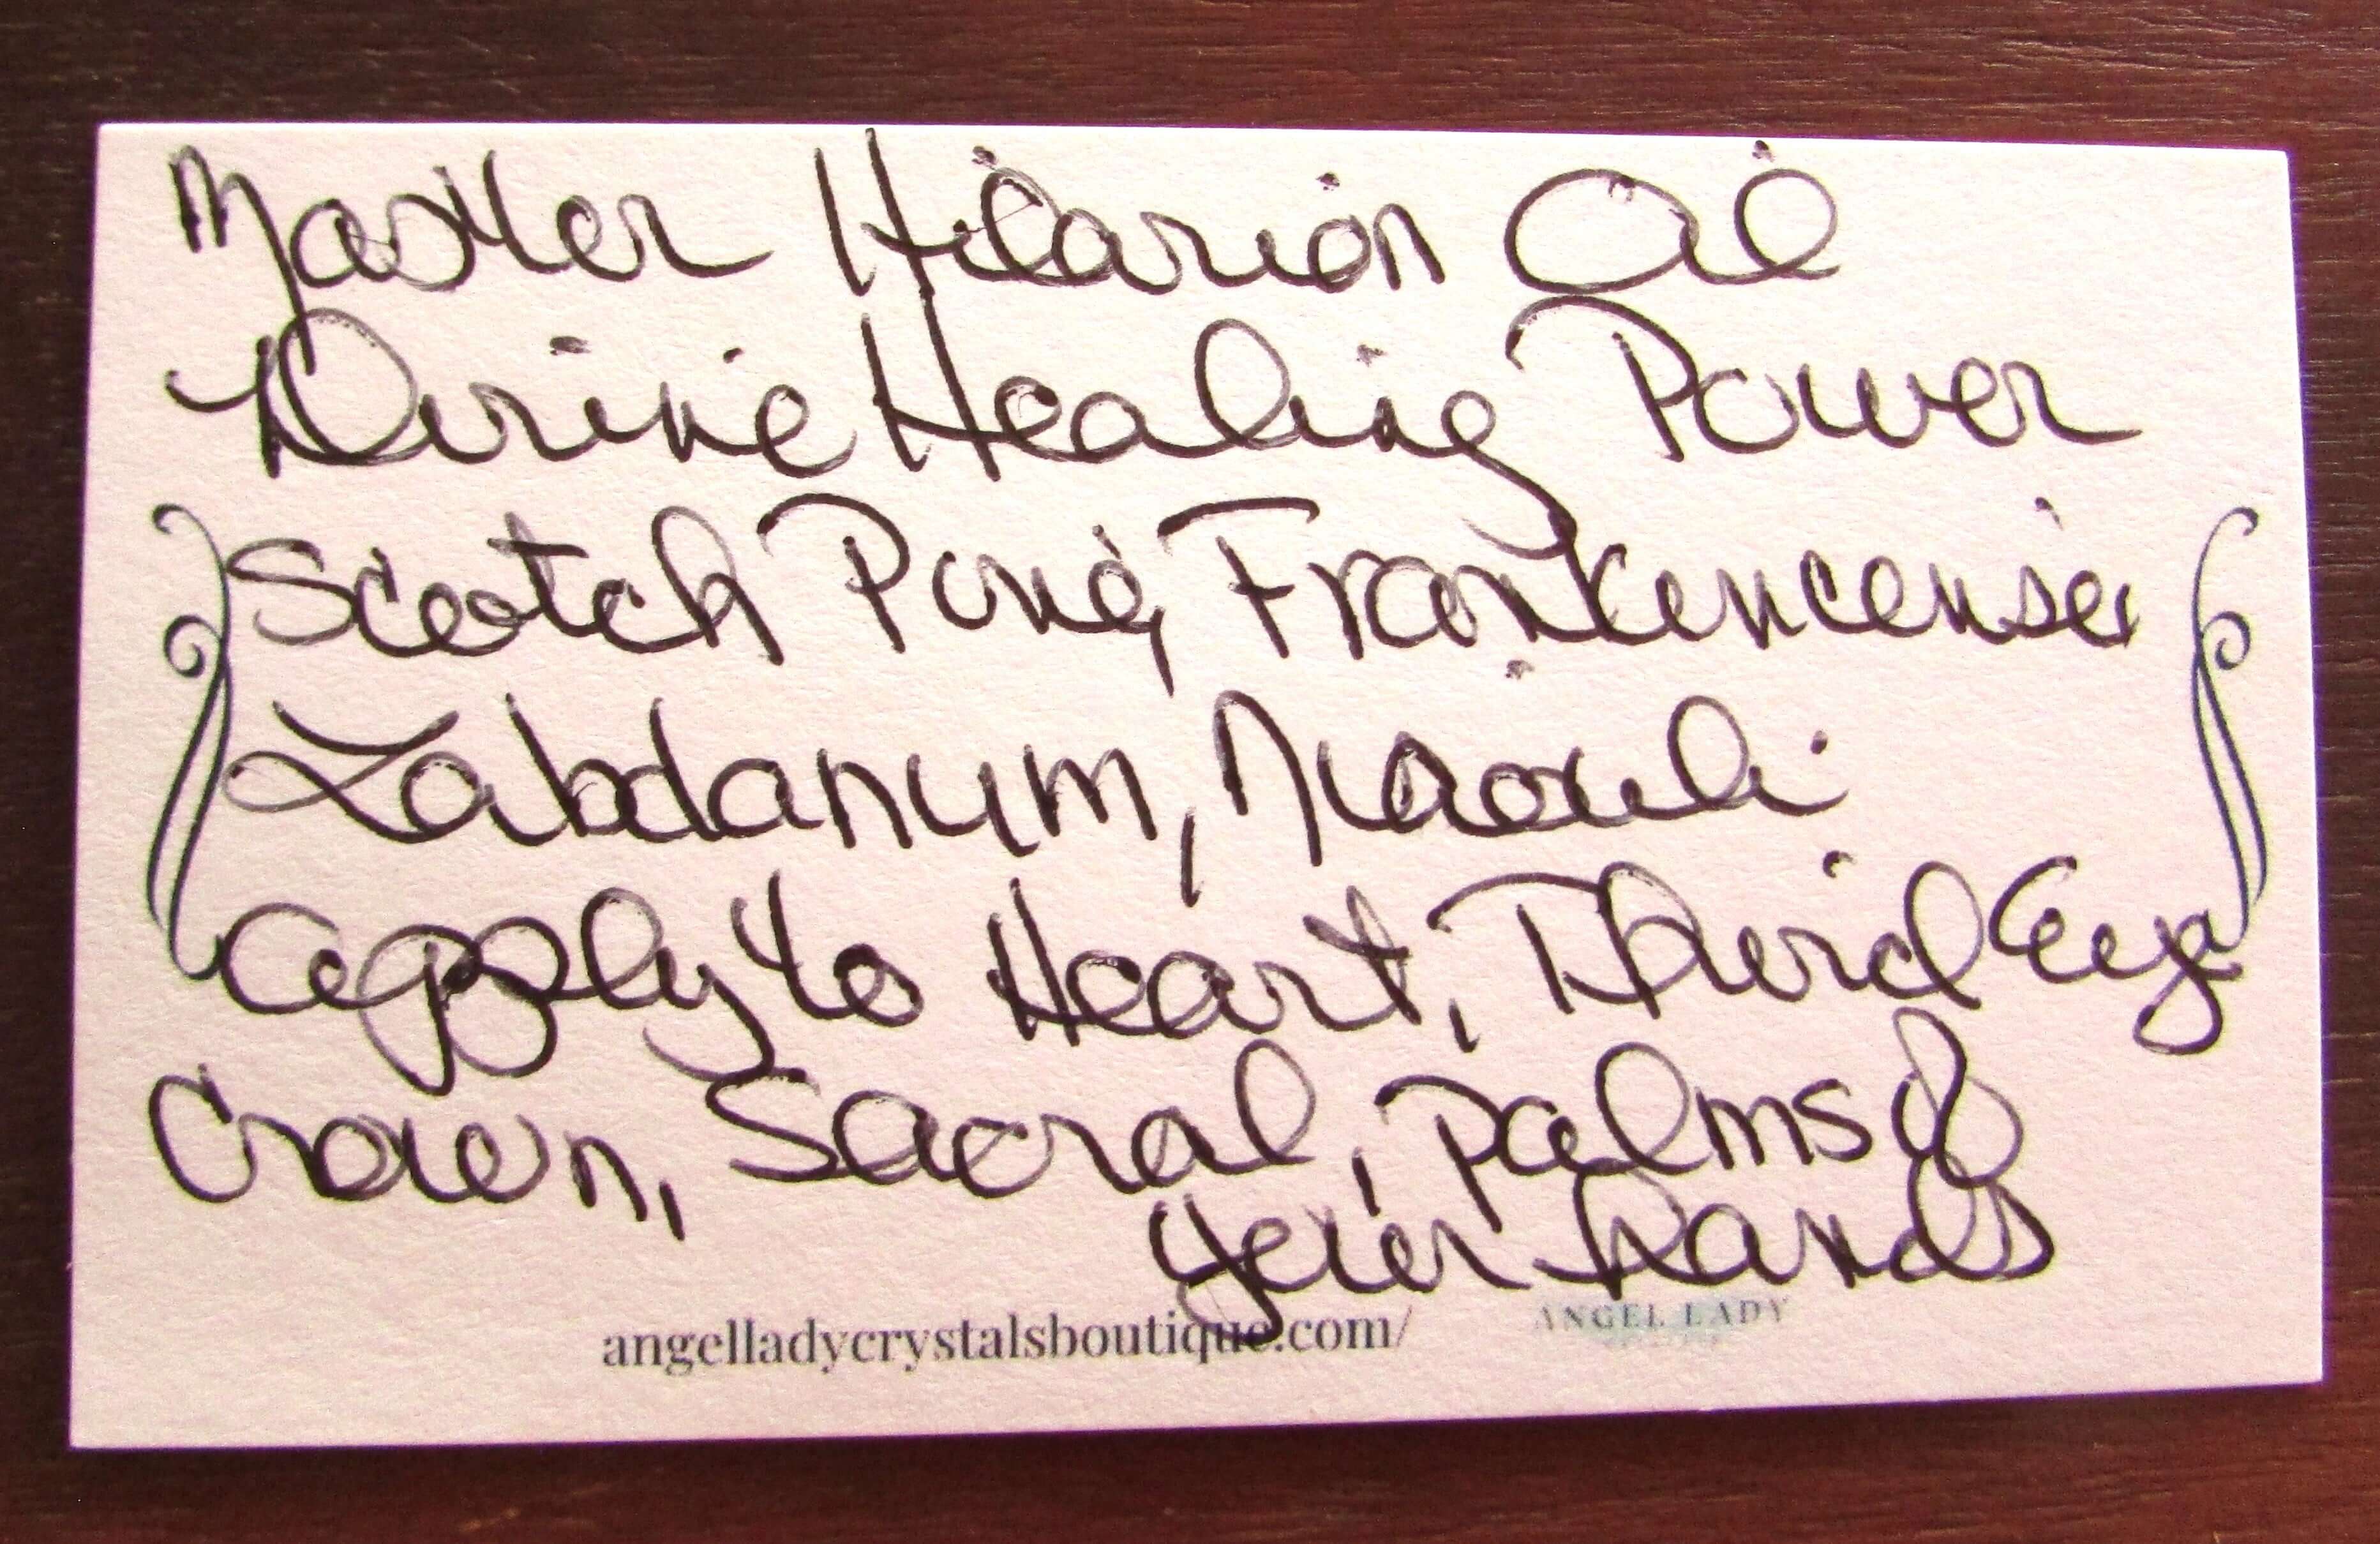 Master Hilarion Oil
Divine Healing Power
Scotch Pine, Frankincense,
Labdanum, Niaouli
apply to Heart, Third Eye
Crown, Sacral, Palms of
your hands
angelladycrystalsboutique.com/
ANGEL LADY